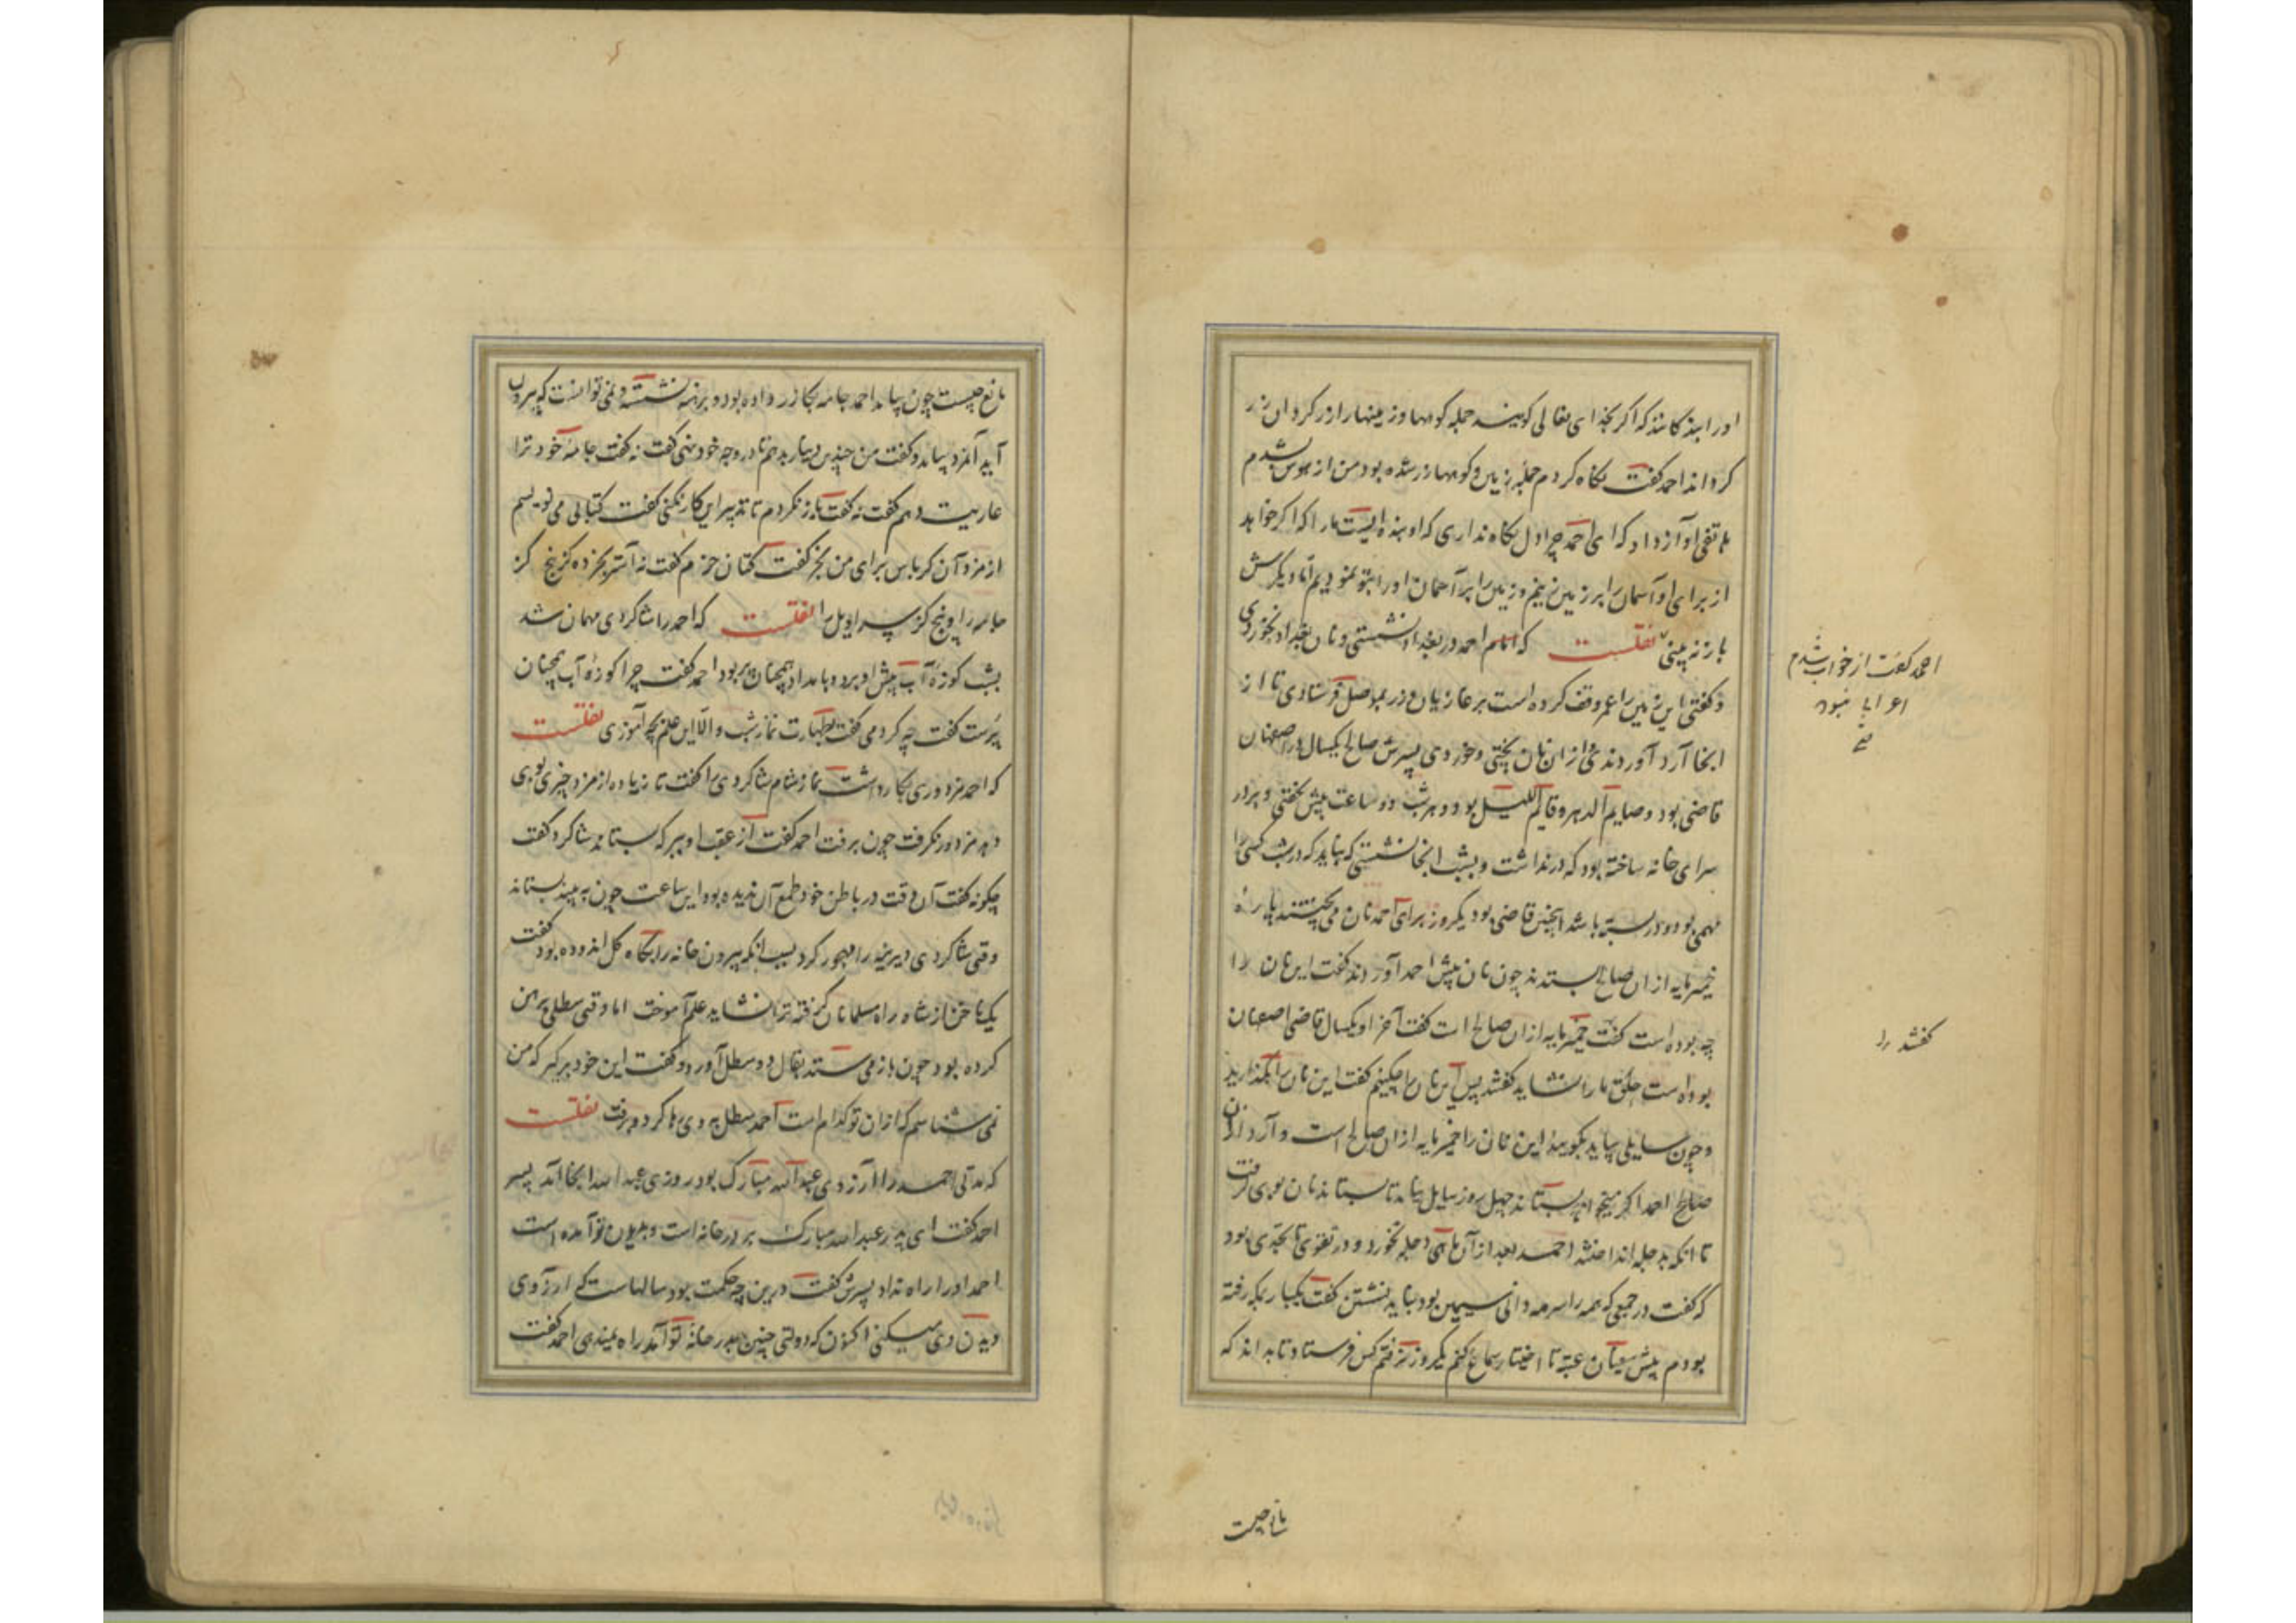 او را بندگانند که اگر بخدای تعالی گویند جمله کوهها و زمینها را زر گردان زر
گرداند احمد گفت نگاه کردم جمله زمین و کوهها زر شده بود من از هوش بشدم
هاتفی آواز داد که ای احمد چرا دل نگاه نداری که او بنده ایست ما را که اگر خواهد
از برای او آسمان را بر زمین زنیم و زمین را بر آسمان او را بتو نمودیم اما دیگرش
باز نه بینی نقلست که امام احمد در بغداد نشستی و نان بغداد نخوردی
و گفتی این زمین را عمر وقف کرده است بر غازیان و زر بموصل فرستادی تا از
انجا آرد آوردندی و از ان نان پختی و خوردی پسرش صالح یکسال در اصفهان
قاضی بود و صایم الدهر و قایم اللیل بود و هر شب دو ساعت بیش نخفتی و بر در
سرای خانه ساخته بود که در نداشت و بشب انجا نشستی که نباید که در شب کسی را
مهمی بود و در بسته باشد اینچنین قاضی بود یکروز برای احمد نان می پختند پاره
خمیرمایه از ان صالح بستدند چون نان پیش احمد آوردند گفت این نان را
چه بوده است گفت خمیرمایه از ان صالح است گفت آخر او یکسال قاضی اصفهان
بوده است حلق ما را نشاید گفتند پس این نان را چکنیم گفت این نان را بگذارید
و چون سایلی بیاید بگویید این نان را خمیرمایه از ان صالح است و آرد از ان
احمد اگر میخواهد بستاند چهل روز سایل نیامد تا بستاند نان بوی گرفت
تا انکه بدجله انداختند احمد بعد از آن ماهی دجله نخورد و در تقوی تا بحدی بود
که گفت در جمعی که همه را سرمه دانی سیمین بود نباید نشستن گفت یکبار بمکه رفته
بودم پیش سفیان عیینه تا اخبار سماع کنم یکروز نرفتم کس فرستاد تا بداند که
احمد گفت از خواب شدم
گفتند را
مانع چیست
مانع چیست چون بیامد احمد جامه بگازر داده بود و برهنه نشسته و نمی توانست که بیرون
آید آمرد بیامد و گفت من چندین دینار بدهم تا در وجه خود نهی گفت نه گفت جامه خود ترا
عاریت دهم گفت نه گفت باز نگردم تا تدبیر این کار نکنی گفت کتابی می نویسم
از مزد آن کرباس برای من بخر گفت کتان خرم گفت نه آستر بخر ده گز پنج گز
جامه را و پنج گز سراویل را نقلست که احمد را شاگردی مهمان شد
بشب کوزه آب پیش او برد و بامداد همچنان پر بود احمد گفت چرا کوزه آب همچنان
پرست گفت چه کردمی گفت طهارت نماز شب و الا این علم چه آموزی نقلست
که احمد مزدوری بکار داشت نماز شام شاگردی را گفت تا زیاده از مزد چیزی بوی
دهد مزدور نگرفت چون برفت احمد گفت از عقب او ببر که بستاند شاگرد گفت
چگونه گفت آن وقت در باطن خود طمع آن ندیده بود این ساعت چون به بیند بستاند
وقتی شاگردی دیرینه را مهجور کرد بسبب انکه بیرون خانه را بگاه گل اندوده بود گفت
یک ناخن از شاه راه مسلمانان گرفته ترا نشاید علم آموخت اما وقتی سطلی رهن
کرده بود چون باز می ستد بقال دو سطل آورد و گفت این خود برگیر که من
نمی شناسم که از ان تو کدام است احمد سطل به وی رها کرد و برفت نقلست
که مدتی احمد را آرزوی عبدالله مبارک بود روزی عبدالله انجا آمد پسر
احمد گفت ای پدر عبدالله مبارک بر در خانه است و بدیدن تو آمده است
احمد او را راه نداد پسرش گفت درین چه حکمت بود سالهاست که آرزوی
دیدن وی میکنی اکنون که دولتی چنین بدر خانه تو آمد راه نمیدهی احمد گفت